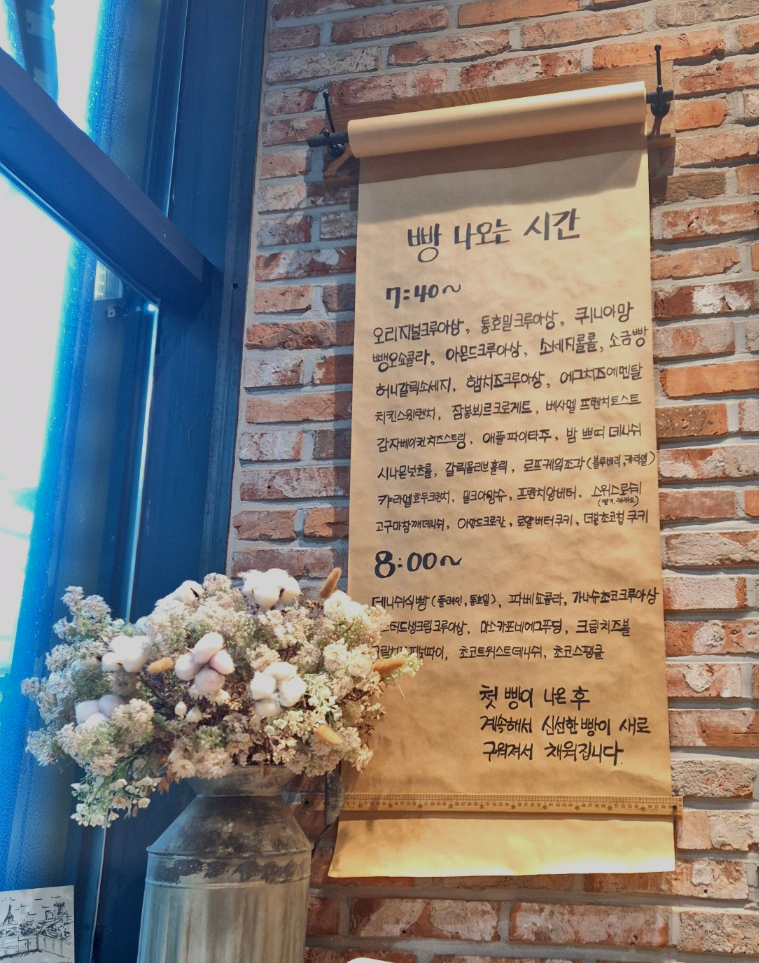 빵 나오는 시간
7:40~
오리지널크루아상, 통호밀크루아상, 퀴니아망
뺑오쇼콜라, 아몬드크루아상, 소세지롤롤, 소금빵
허니갈릭소세지, 햄치즈크루아상, 에그치즈에멘탈
치킨스윗런치, 잠봉뵈르크로게트, 버사멜 프렌치토스트
감자베이컨치즈스트링, 애플파이타주, 밤 쁘띠 데니쉬
시나몬넛츠롤, 갈릭올리브훌릭, 로프케의조각(블루베리,캬라멜)
캬라멜호두크런치, 밀크아망수, 프렌치앙버터, 스위스로쉬
고구마참깨데니쉬, 아망드크로칸, 로얄버터쿠키, 더블초코칩쿠키
8:00~
데니쉬식빵(플레인,통호밀), 파베쇼콜라, 가나슈초코크루아상
생크림크루아상, 마스카포네에그푸딩, 크림치즈볼
초코트위스트데니쉬, 초코스팡클
첫 빵이 나온 후
계속해서 신선한 빵이 새로
구워져서 채워집니다.